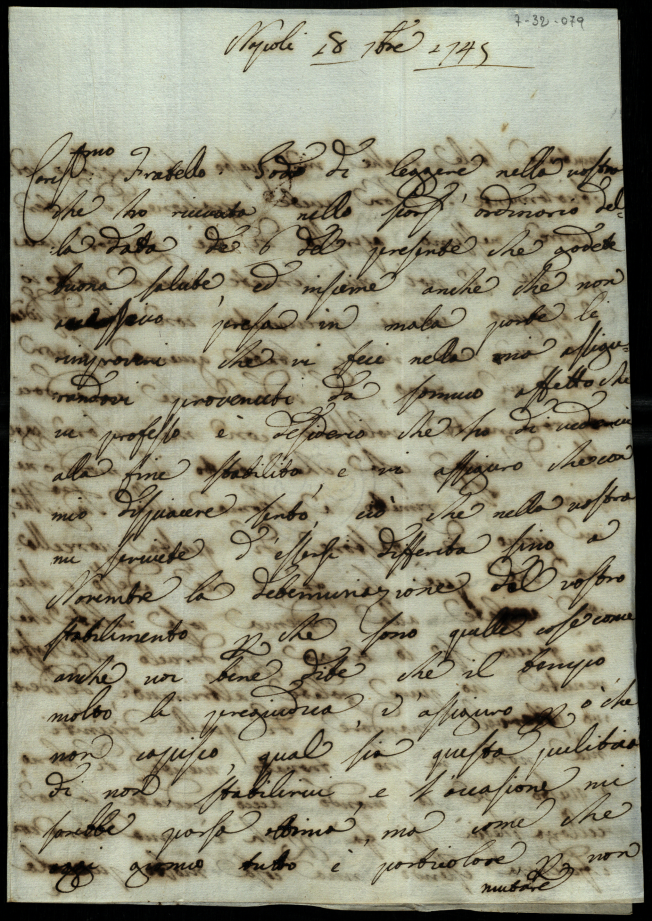 7-32-079
Napoli 18 7bre 1745
Cariss.mo Fratello Godo di leggere nella vostra
che ho ricevuta nello scors' ordinario del-
la data de 6 del presente che godete
buona salute ed insieme anche che non
presa in mala parte li
rimproveri che vi feci nella mia assigu-
randovi provenuti da sommo affetto che
vi professo è desiderio che ho di vedervi
alla fine stabilito, e vi assiguro che con
mio dispiacere sento, ciò che nella vostra
mi scrivete d'essersi differita sino a
Novembre la determinazione del vostro
stabilimento p che sono quelle cose come
anche voi bene dite che il tempo
molto li pregiudica, v assiguro p o' che
non capisco qual sia questa pulitica
di non stabilirvi e l'occasione mi
sarebbe parsa ottima, ma come che
oggi giorno tutto è particolare p non
mutare